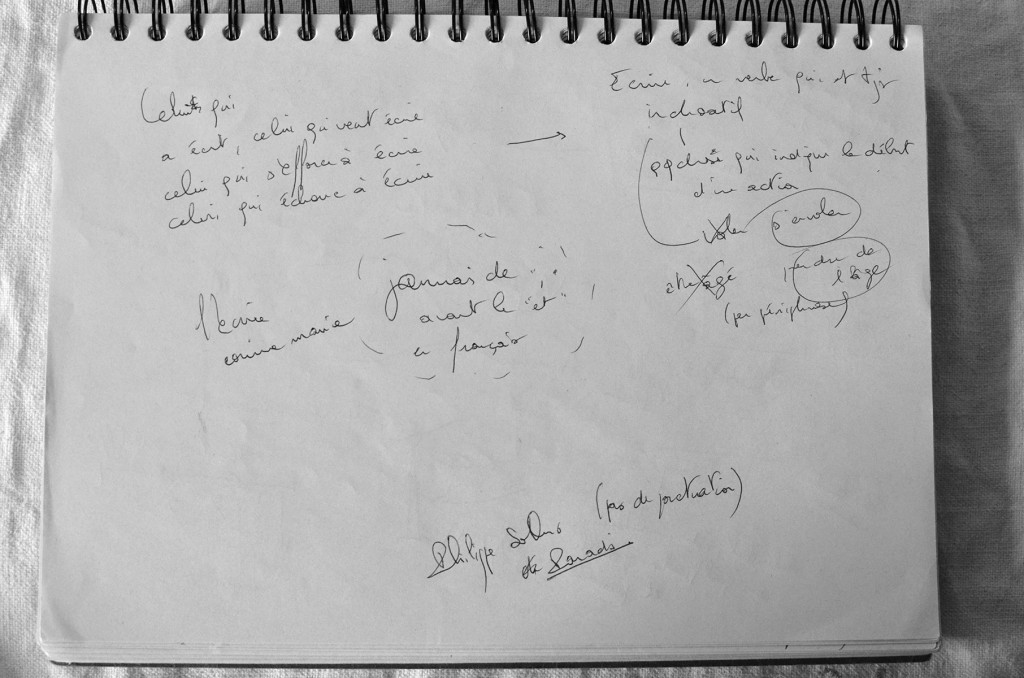 Celui qui
a écrit, celui qui veut écrire
celui qui s'efforce à écrire
celui qui échoue à écrire
→
Écrire, un verbe qui est tjr
inchoatif
qqchose qui indique le début
d'une action
voler s'envoler
âgé prendre de
l'âge
(par périphrase)
l'écrire
comme manie
jamais de ";"
avant le "et"
en français
Philippe Sollers (pas de ponctuation)
Paradis